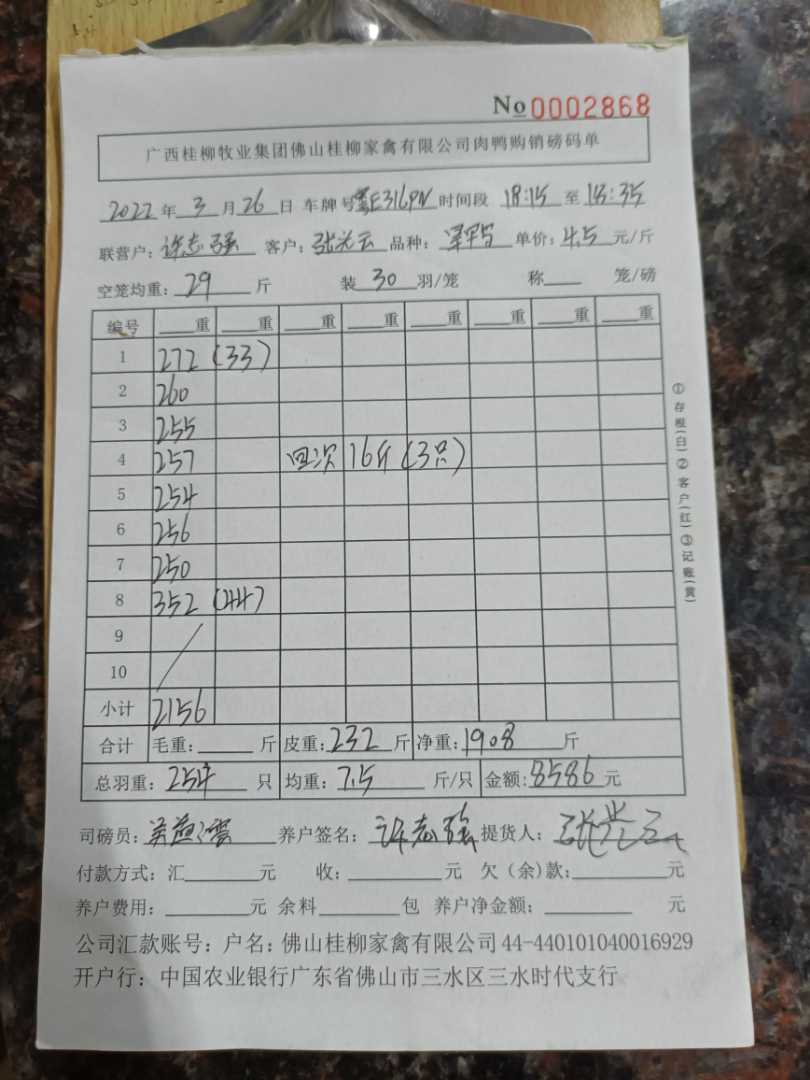 No 0002868
广西桂柳牧业集团佛山桂柳家禽有限公司肉鸭购销磅码单
2022年 3 月 26 日 车牌号 粤E316PN 时间段 18:15 至 18:35
联营户: 许志强 客户: 张兴云 品种: 单价: 4.5 元/斤
空笼均重: 29 斤 装 30 羽/笼 称 笼/磅
编号 重 重 重 重 重 重 重 重
1 272 (33)
2 260
3 255
4 257 四次 16斤 (3只)
5 254
6 256
7 250
8 352 (44)
9
10
小计 2156
合计 毛重: 斤 皮重: 232 斤 净重: 1908 斤
总羽重: 254 只 均重: 7.5 斤/只 金额: 8586 元
司磅员: 养户签名: 许志强 提货人: 张兴云
付款方式: 汇 元 收: 元 欠(余)款: 元
养户费用: 元 余料 包 养户净金额: 元
公司汇款账号: 户名: 佛山桂柳家禽有限公司 44-440101040016929
开户行: 中国农业银行广东省佛山市三水区三水时代支行
①存根(白)②客户(红)③记账(黄)